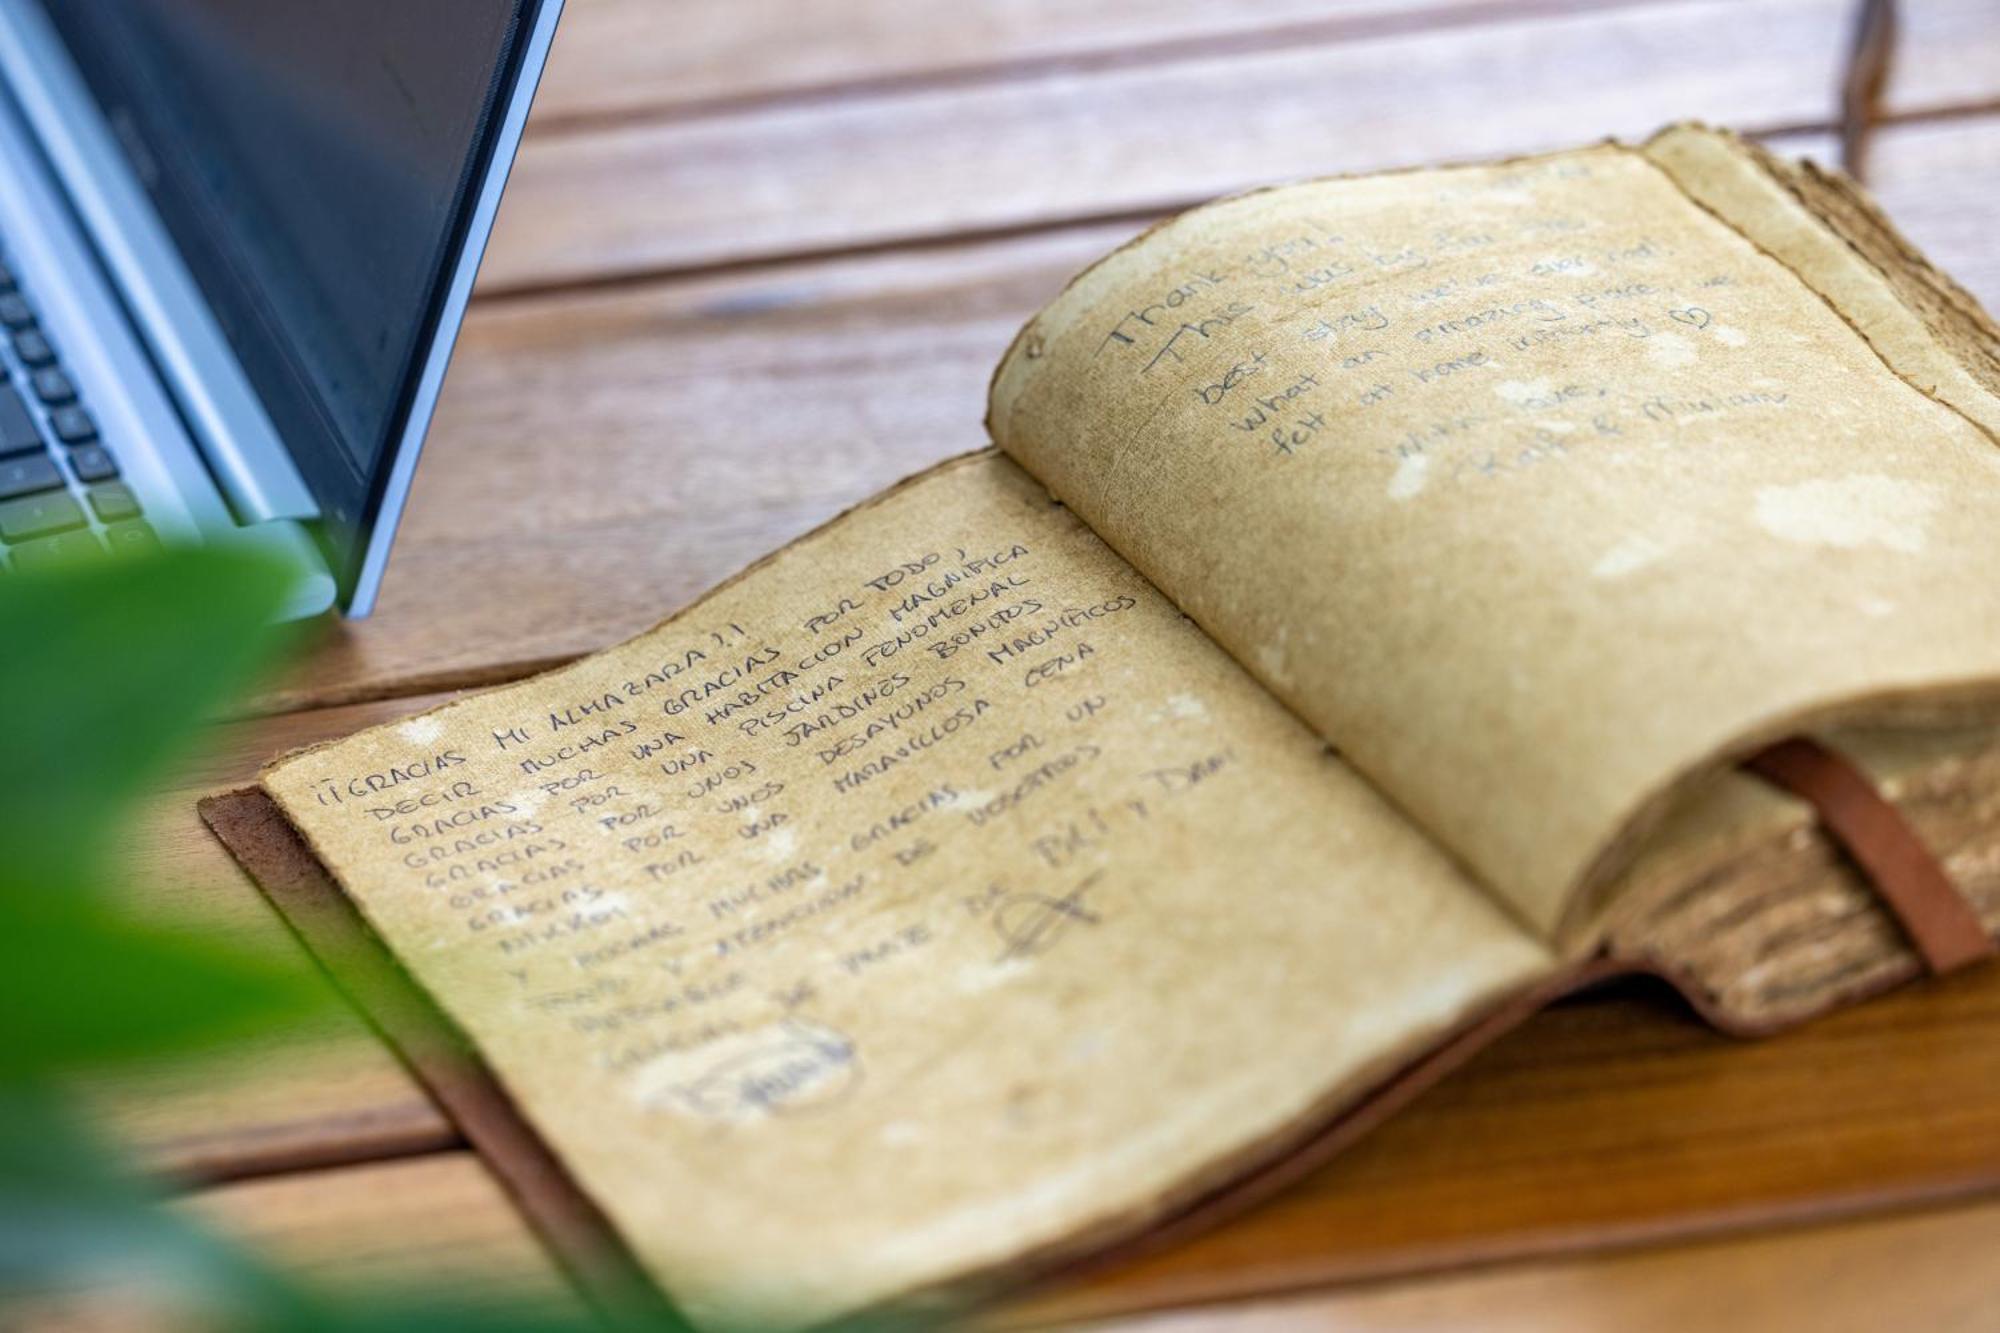 ¡¡GRACIAS MI ALMAZARA!!
DECIR MUCHAS GRACIAS POR TODO,
GRACIAS POR UNA HABITACION MAGNIFICA
GRACIAS POR UNA PISCINA FENOMENAL
GRACIAS POR UNOS JARDINES BONITOS
GRACIAS POR UNOS DESAYUNOS MAGNIFICOS
GRACIAS POR UNA MARAVILLOSA CENA
Y MUCHAS MUCHAS GRACIAS POR UN
TRATO Y ATENCION DE VOSOTROS
GRACIAS DE PARTE DE PILI Y
Thank you!
This was by far the
best stay we've ever had!
What an amazing place, we
felt at home instantly ♡
With love,
Ralf &